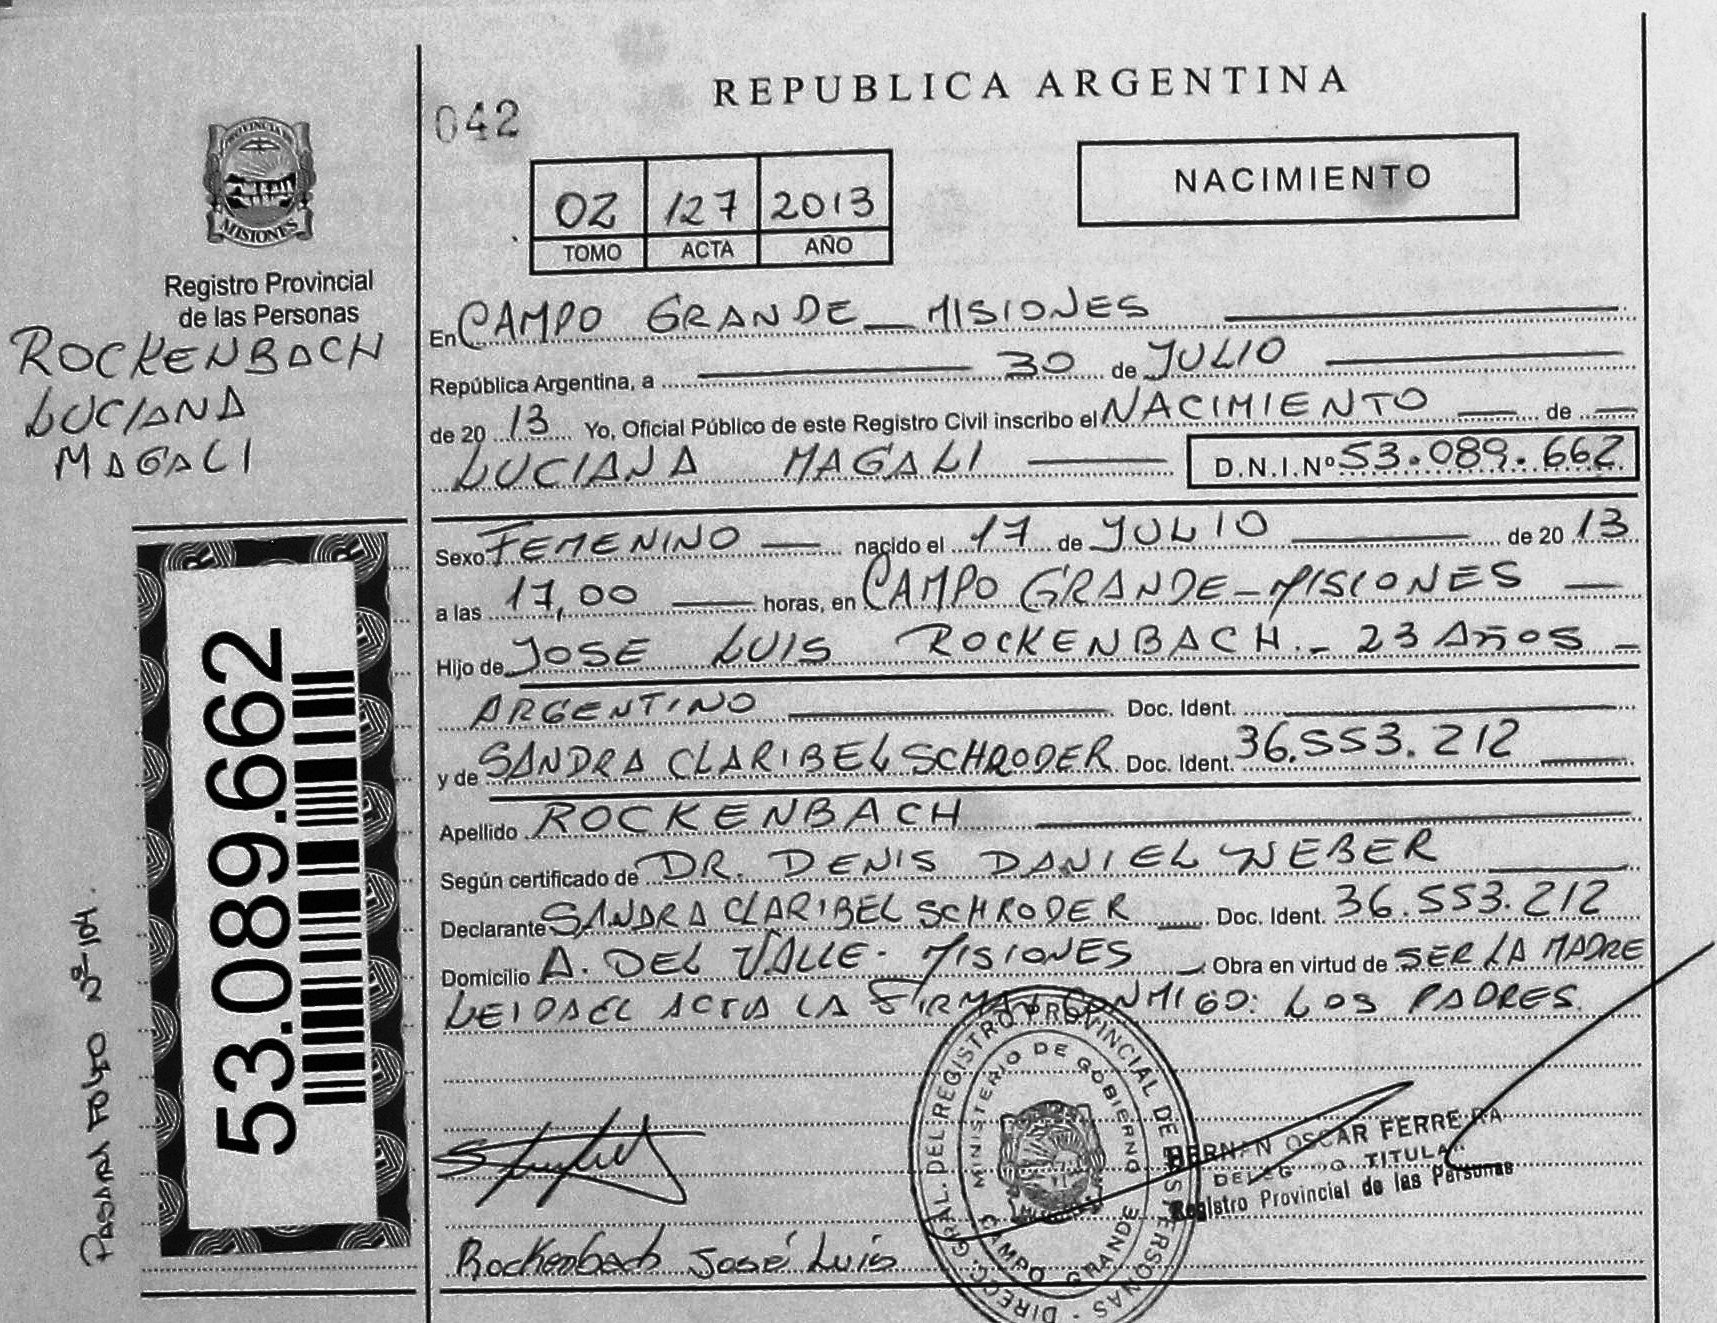 REPUBLICA ARGENTINA
042
PROVINCIA DE
MISIONES
Registro Provincial
de las Personas
ROCKENBACH
LUCIANA
MAGALI
02 127 2013
TOMO ACTA AÑO
NACIMIENTO
En CAMPO GRANDE _ MISIONES
República Argentina, a 30 de JULIO
de 20 13 Yo, Oficial Público de este Registro Civil inscribo el NACIMIENTO de
LUCIANA MAGALI D.N.I.Nº 53.089.662
Sexo FEMENINO nacido el 17 de JULIO de 20 13
a las 17,00 horas, en CAMPO GRANDE - MISIONES
Hijo de JOSE LUIS ROCKENBACH.- 23 AÑOS -
ARGENTINO Doc. Ident.
y de SANDRA CLARIBEL SCHRODER Doc. Ident. 36.553.212
Apellido ROCKENBACH
Según certificado de DR. DENIS DANIEL WEBER
Declarante SANDRA CLARIBEL SCHRODER Doc. Ident. 36.553.212
Domicilio A. DEL VALLE - MISIONES Obra en virtud de SER LA MADRE
LEIDA EL ACTA LA FIRMAN CONMIGO: LOS PADRES.
53.089.662
PASARA FOLIO
DIRECC. GRAL. DEL REGISTRO PROVINCIAL DE LAS PERSONAS
MINISTERIO DE GOBIERNO
CAMPO GRANDE
HERNAN OSCAR FERREYRA
DELEGADO TITULAR
Registro Provincial de las Personas
Rockenbach José Luis